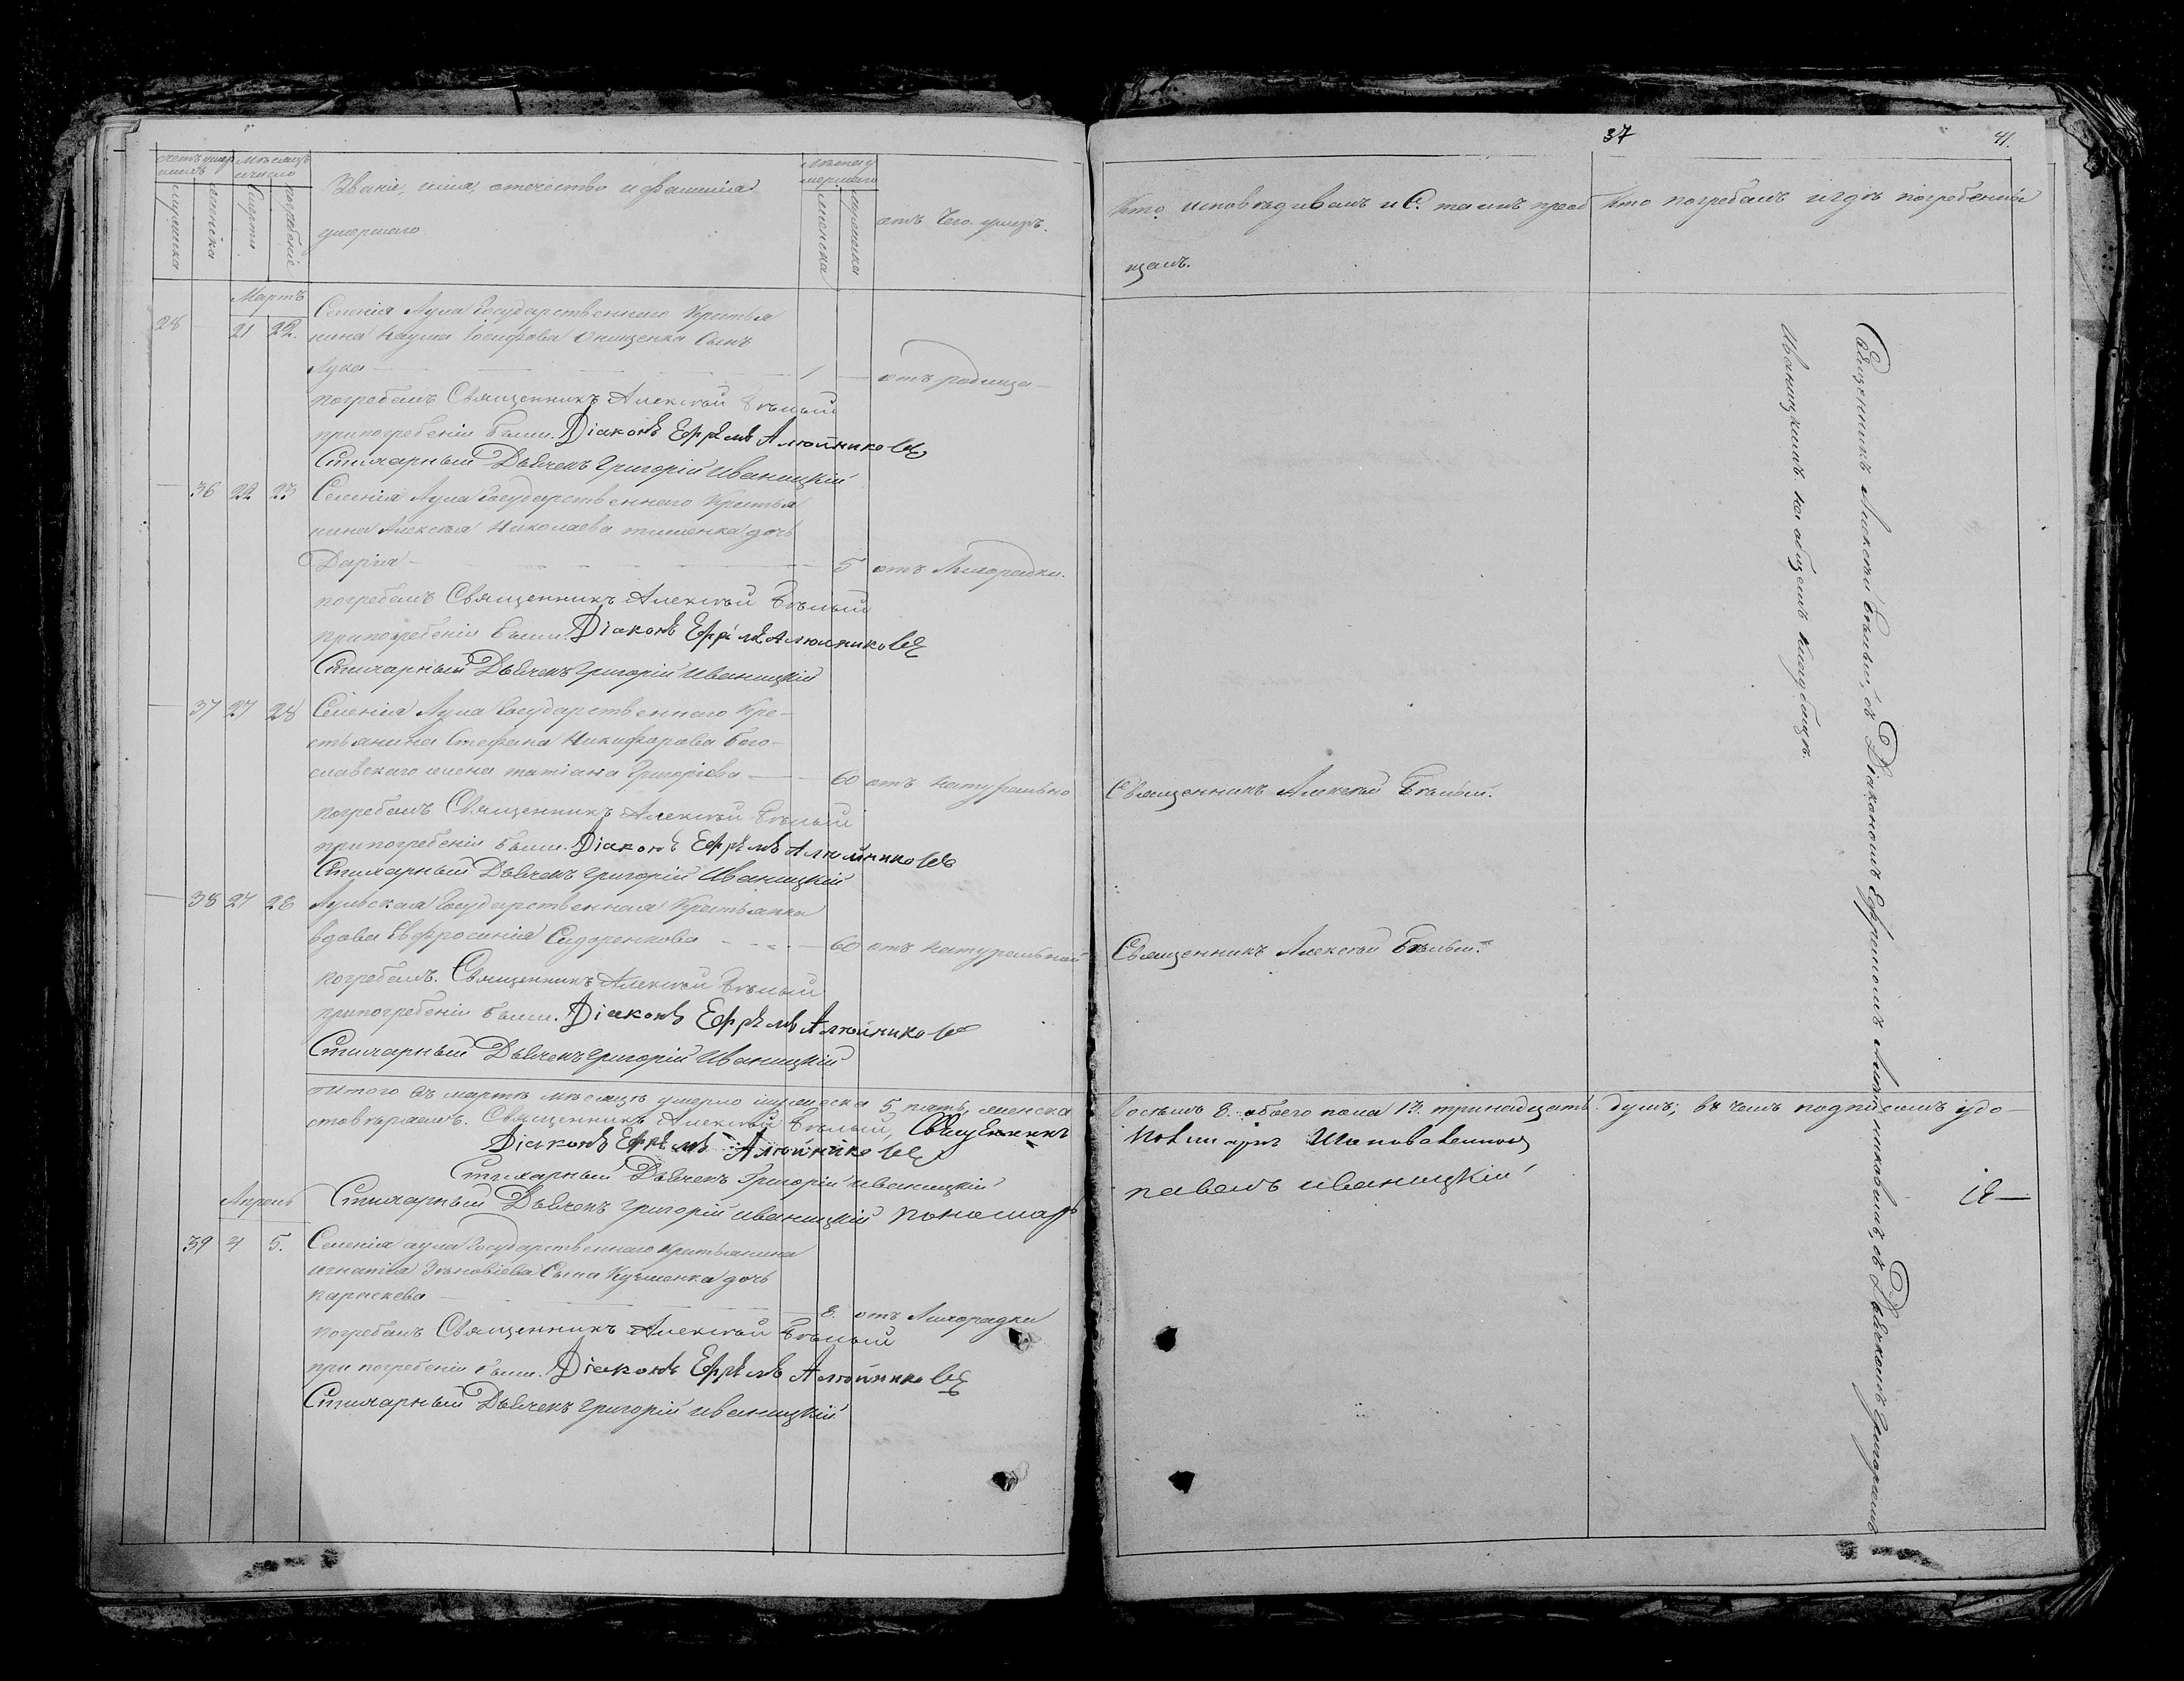 37
41.
счетъ умер
шихъ
мѣсяцъ
и число
мужеска
женска
смерти
погребенія
Званіе, имя, отечество и фамилія
умершаго
Лѣта у
мершаго
мужеска
женска
отъ чего умеръ.
Кто исповѣдивалъ и С. таинъ пріоб
щалъ.
Кто погребалъ и гдѣ погребенны
Мартъ
28 — 21 22. Селенія Аула Государственнаго Крестья
нина Наума Іосифова Онищенка Сынъ
Лука — 1 — отъ родимца —
погребалъ Священникъ Алексѣй Бѣлый
при погребеніи были. Діаконъ Ефремъ Алюйниковъ
Стихарный Дьячекъ Григорій Иваницкій
— 36 22 23 Селенія Аула Государственнаго Крестья
нина Алексѣя Николаева тименка дочь
Дарія — 5 отъ Лихорадки.
погребалъ Священникъ Алексѣй Бѣлый
при погребеніи были. Діаконъ Ефремъ Алюйниковъ
Стихарный Дьячекъ Григорій Иваницкій
— 37 27 28 Селенія Аула Государственнаго Кре-
стьянина Стефана Никифорова Бого-
славскаго жена татіана Григоріева — 60 отъ натуральной
Священникъ Алексѣй Бѣлый.
погребалъ Священникъ Алексѣй Бѣлый
при погребеніи были. Діаконъ Ефремъ Алюйниковъ
Стихарный Дьячекъ Григорій Иваницкій
— 38 27 28 Аульская Государственная Крестьянка
вдова Евфросинія Сидоренкова — 60 отъ натуральной
Священникъ Алексѣй Бѣлый.
погребалъ. Священникъ Алексѣй Бѣлый
при погребеніи были. Діаконъ Ефремъ Алюйниковъ
Стихарный Дьячекъ Григорій Иваницкій
Итого въ мартѣ мѣсяцѣ умерло мужеска 5 пять, женска восемъ 8. обоего пола 13. тринадцать душъ; въ чемъ подписомъ удо-
стовѣряемъ. Священникъ Алексѣй Бѣлый, Священникъ
Діаконъ Ефремъ Алюйниковъ
Стихарный Дьячекъ Григорій Иваницкій
Стихарный Дьячекъ Григорій Иваницкій Пономарь павелъ иваницкій
Апрель
39 4 5. Селенія аула Государственнаго Крестьянина
игнатія Зѣновіева Сына Кузменка дочь
параскева — 8. отъ Лихорадки
погребалъ Священникъ Алексѣй Бѣлый
при погребеніи были. Діаконъ Ефремъ Алюйниковъ
Стихарный Дьячекъ Григорій Иваницкій
Священникъ Алексѣй Бѣлый, съ Діакономъ Ефремомъ съ Дьячкомъ Григоріемъ
Иваницкимъ. на общемъ кладбищѣ.